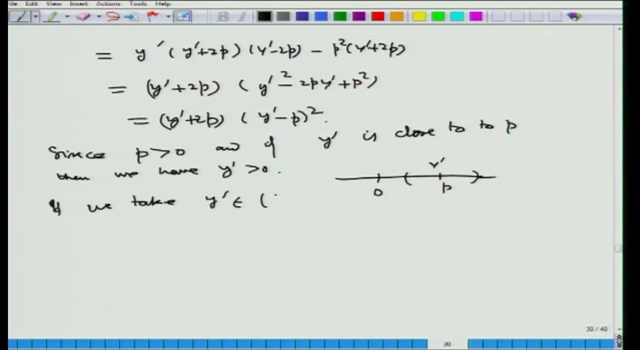 File Edit View Insert Actions Tools Help
= y' (y'+2p) (y'-2p) - p²(y'+2p)
= (y'+2p) ( y'² - 2py' + p²)
= (y'+2p) ( y'-p)².
Since p>0 and if y' is close to to p
then we have y' >0.
y'
0 ( p )
If we take y' ∈ (
30 / 40
30